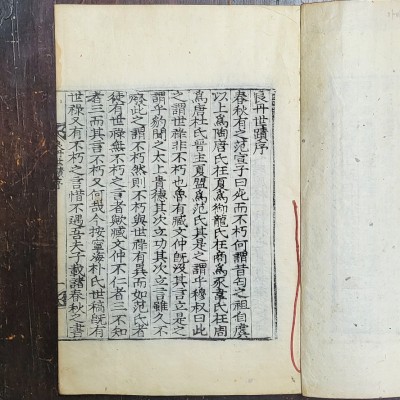 良丹世蹟序
春秋有之范宣子曰死而不朽何謂昔匃之祖自虞
以上爲陶唐氏在夏爲御龍氏在商爲豕韋氏在周
爲唐杜氏晉主夏盟爲范氏其是之謂乎穆叔曰此
之謂世祿非不朽也魯有臧文仲旣沒其言立是之
謂乎豹聞之太上貴德其次立功其次立言雖久不
廢此之謂不朽然則不朽與世祿有異而如范氏者
徒有世祿無不朽之言者歟臧文仲不仁者三不知
者三而其言不朽又何哉今按寧海朴氏世稿旣有
世祿又有不朽之言惜不遇吾夫子載諸春秋之書